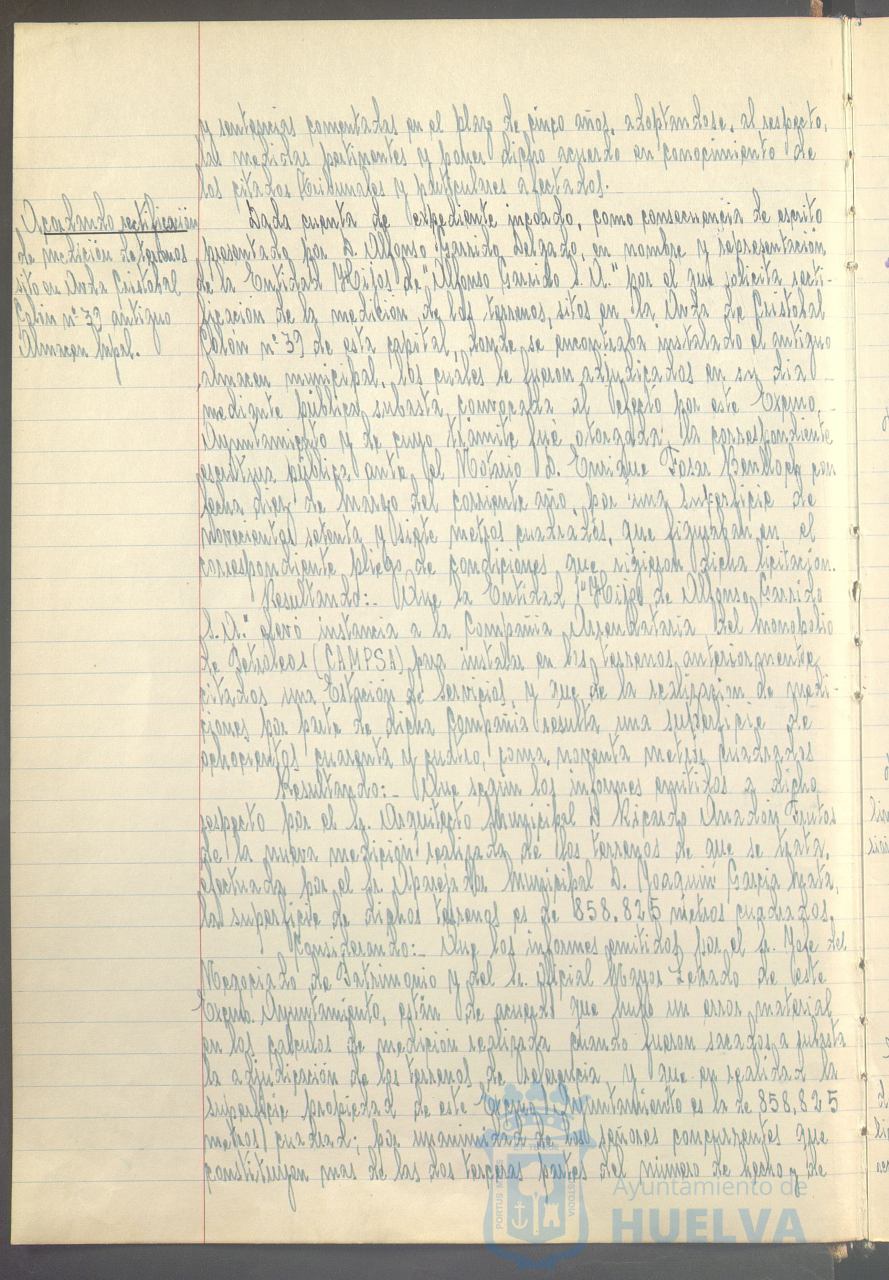 y sentencias comentadas en el plazo de cinco años, adoptandose, al respecto,
las medidas pertinentes y poner dicho acuerdo en conocimiento de
los citados Tribunales y particulares afectados.
Acordando rectificación
de medición de terrenos
sito en Avda Cristobal
Colón nº 39 antiguo
Almacen Mpal.
Dada cuenta de expediente incoado, como consecuencia de escrito
presentado por D. Alfonso Garrido Delgado, en nombre y representación
de la Entidad Hijos de "Alfonso Garrido S.A." por el que solicita recti-
ficación de la medición de los terrenos, sitos en la Avda de Cristobal
Colón nº 39 de esta capital, donde se encontraba instalado el antiguo
almacen municipal, los cuales le fueron adjudicados en su dia
mediante pública subasta, convocada al efecto por este Excmo.
Ayuntamiento y de cuyo trámite fué otorgada la correspondiente
escritura pública ante el Notario D. Enrique Fosar Benlloch con
fecha diez de Marzo del corriente año, por una superficie de
novecientos setenta y siete metros cuadrados, que figuraban en el
correspondiente pliego de condiciones que rigieron dicha licitación.
Resultando:- Que la Entidad "Hijos de Alfonso Garrido
S.A." elevó instancia a la Compañia Arrendataria del Monopolio
de Petróleos (CAMPSA) para instalar en los terrenos anteriormente
citados una Estación de Servicios, y que de la realización de medi-
ciones por parte de dicha Compañia resulta una superficie de
ochocientos cuarenta y cuatro, coma, noventa metros cuadrados
Resultando:- Que según los informes emitidos a dicho
respecto por el Sr. Arquitecto Municipal D Ricardo Anadón Frutos
de la nueva medición realizada de los terrenos de que se trata,
efectuada por el Sr Aparejador Municipal D. Joaquin Garcia Mata,
la superficie de dichos terrenos es de 858,825 metros cuadrados.
Considerando:- Que los informes emitidos por el Sr. Jefe del
Negociado de Patrimonio y del Sr. Oficial Mayor Letrado de este
Excmo. Ayuntamiento, están de acuerdo que hubo un error material
en los calculos de medición realizada cuando fueron sacados a subasta
la adjudicación de los terrenos de referencia y que en realidad la
superficie propiedad de este Excmo Ayuntamiento es la de 858,825
metros cuadrad; por unanimidad de los señores concurrentes que
constituyen mas de las dos terceras partes del número de hecho y de
PORTUS MARIS
CUSTODIA
Ayuntamiento de
HUELVA